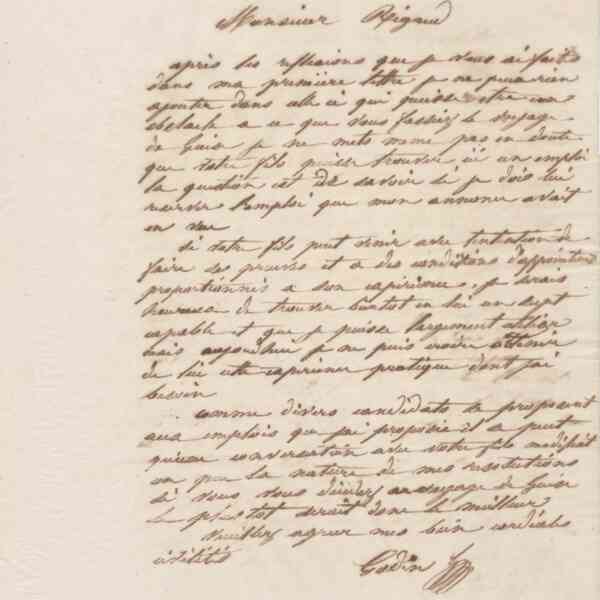 Monsieur Rigaud
après les reflexions que je vous ai faites
dans ma première lettre je ne peux rien
ajouter dans celle ci qui puisse etre un
obstacle a ce que vous fassiez le voyage
de Guise je ne mets meme pas en doute
que votre fils puisse trouver ici un emploi
la question est de savoir si je dois lui
reserver l'emploi que mon annonce avait
en vue
si votre fils peut venir avec l'intention de
faire ses preuves et a des conditions d'appointements
proportionnés a son experience, je serais
heureux de trouver bientot en lui un sujet
capable et que je puisse largement utiliser
mais aujourdhui je ne puis croire obtenir
de lui cette experience pratique dont j'ai
besoin
comme divers candidats se proposent
aux emplois que j'ai proposés il se peut
qu'une conversation avec votre fils modifiat
un peu la nature de mes resolutions
si vous vous decidez au voyage de Guise
le plus tot serait donc le meilleur
Veuillez agreer mes bien cordiales
civilités
Godin